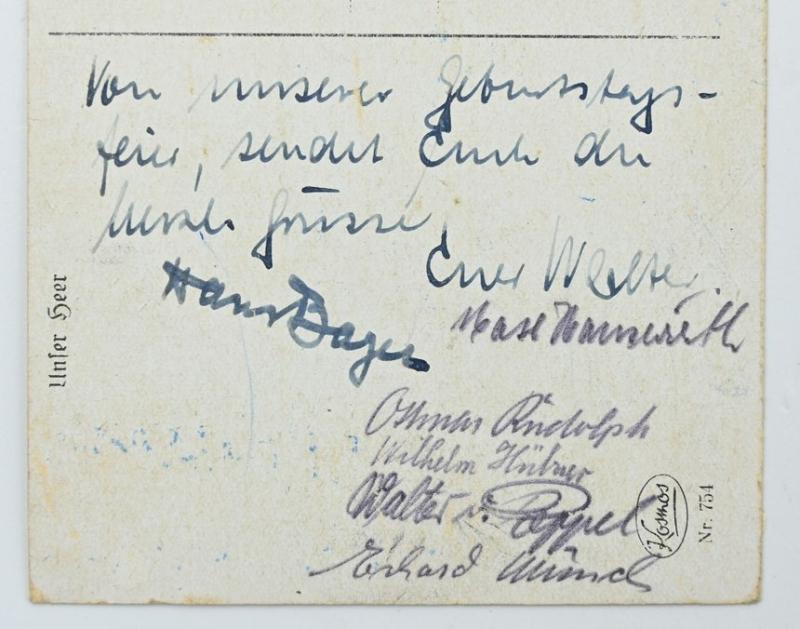 Von unserer Geburtstags-
feier, sendet Euch die
Herzl. Grüsse,
Euer Walter.
Hans
Ottmar Rudolph
Wilhelm Hübner
Walter v. Poppel
Erhard Münch
Unser Heer
Kosmos
Nr. 754